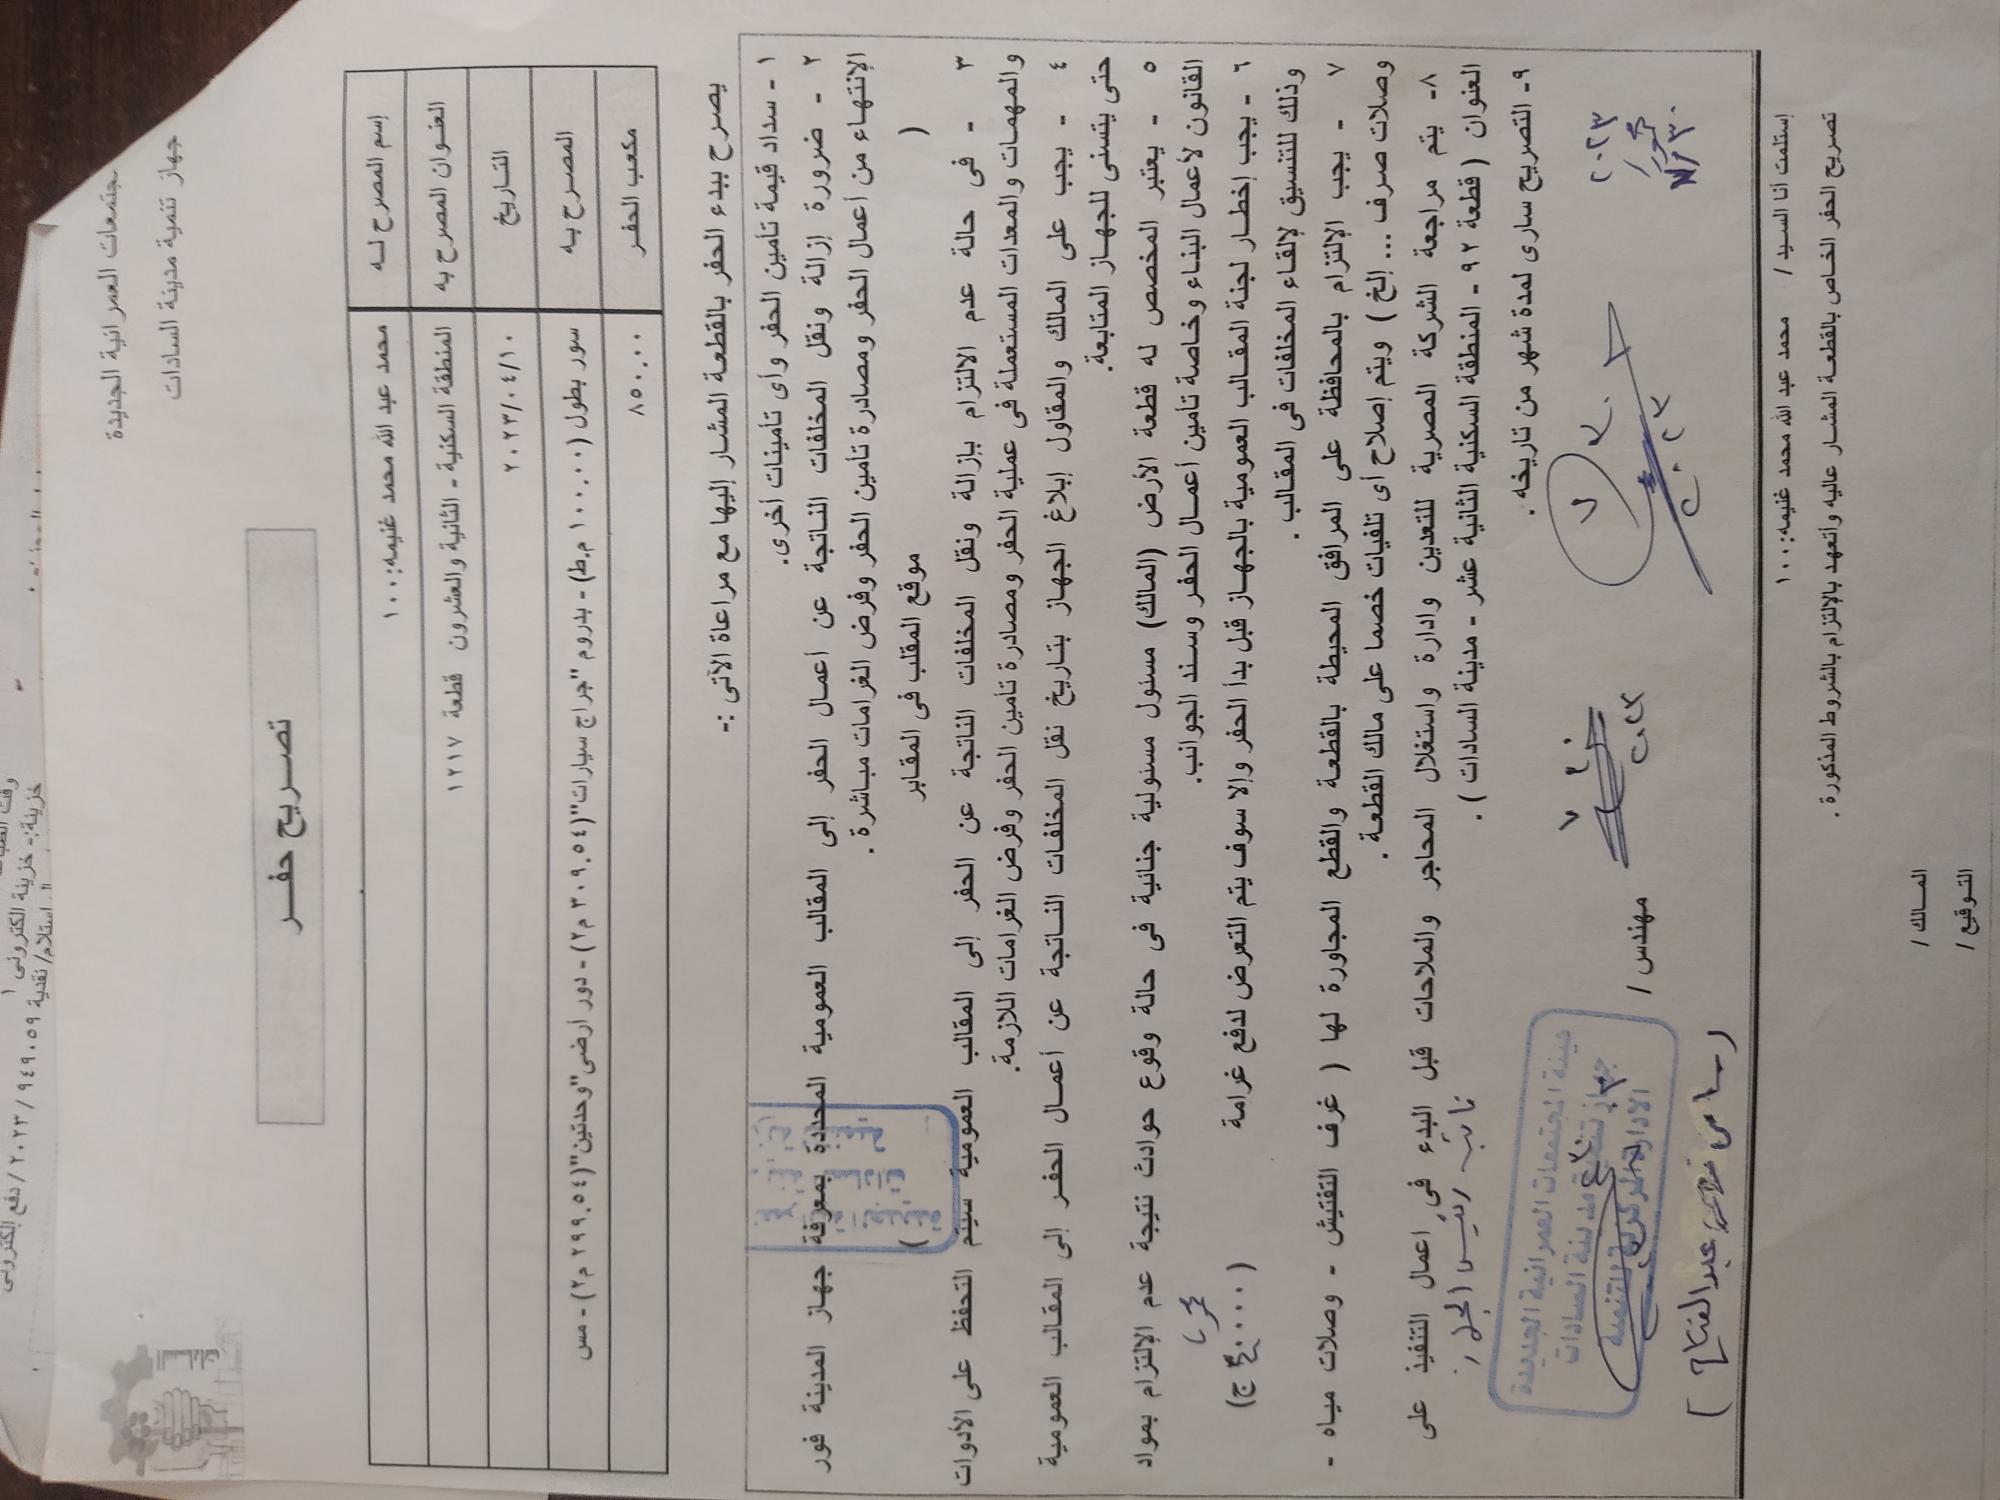 وقت الطباعة
خزينة:- خزينة الكترونى ١
استلام/ نقدية ٩٤٩٠٥٩ / ٢٠٢٣/ دفع إلكترونى
جتمعات العمرانية الجديدة
جهاز تنمية مدينة السادات
تصريح حفر
إسم المصرح له محمد عبد الله محمد غنيمه:١٠٠
العنوان المصرح به المنطقة السكنية - الثانية والعشرون قطعة ١٢١٧
التاريخ ٢٠٢٣/٠٤/١٠
المصرح به سور بطول (١٠٠.٠٠ م.ط) - بدروم "جراج سيارات"(٣٠٩.٥٤ م٢) - دور أرضى"وحدتين"(٢٩٩.٥٤ م٢) - مس
مكعب الحفر ٨٥٠.٠٠
يصرح ببدء الحفر بالقطعة المشار إليها مع مراعاة الآتى :-
١ - سداد قيمة تأمين الحفر وأى تأمينات أخرى.
٢ - ضرورة إزالة ونقل المخلفات الناتجة عن أعمال الحفر إلى المقالب العمومية المحددة بمعرفة جهاز المدينة فور
الإنتهاء من أعمال الحفر ومصادرة تأمين الحفر وفرض الغرامات مباشرة .
( موقع المقلب فى المقابر )
٣ - فى حالة عدم الالتزام بإزالة ونقل المخلفات الناتجة عن الحفر إلى المقالب العمومية سيتم التحفظ على الأدوات
والمهمات والمعدات المستعملة فى عملية الحفر ومصادرة تأمين الحفر وفرض الغرامات اللازمة.
٤ - يجب على المالك والمقاول إبلاغ الجهاز بتاريخ نقل المخلفات الناتجة عن أعمال الحفر إلى المقالب العمومية
حتى يتسنى للجهاز المتابعة.
٥ - يعتبر المخصص له قطعة الأرض (المالك) مسئول مسئولية جنائية فى حالة وقوع حوادث نتيجة عدم الإلتزام بمواد
القانون لأعمال البناء وخاصة تأمين أعمال الحفر وسند الجوانب.
٦ - يجب إخطار لجنة المقالب العمومية بالجهاز قبل بدأ الحفر وإلا سوف يتم التعرض لدفع غرامة
وذلك للتنسيق لإلقاء المخلفات فى المقالب.
٧ - يجب الإلتزام بالمحافظة على المرافق المحيطة بالقطعة والقطع المجاورة لها ( غرف التفتيش - وصلات مياه -
وصلات صرف ... إلخ ) ويتم إصلاح أى تلفيات خصما على مالك القطعة .
٨- يتم مراجعة الشركة المصرية للتعدين وادارة واستغلال المحاجر والملاحات قبل البدء فى اعمال التنفيذ على
العنوان ( قطعة ٩٢ - المنطقة السكنية الثانية عشر - مدينة السادات ) .
٩- التصريح سارى لمدة شهر من تاريخه .
نائب رئيس الجهاز
هيئة المجتمعات العمرانية الجديدة
جهاز تنمية مدينة السادات
الادارة المركزية للتنمية
مهندس /
٢٠٢٣
إستلمت أنا السيد / محمد عبد الله محمد غنيمه:١٠٠
تصريح الحفر الخاص بالقطعة المشار عاليه وأتعهد بالإلتزام بالشروط المذكورة .
المالك /
التوقيع /